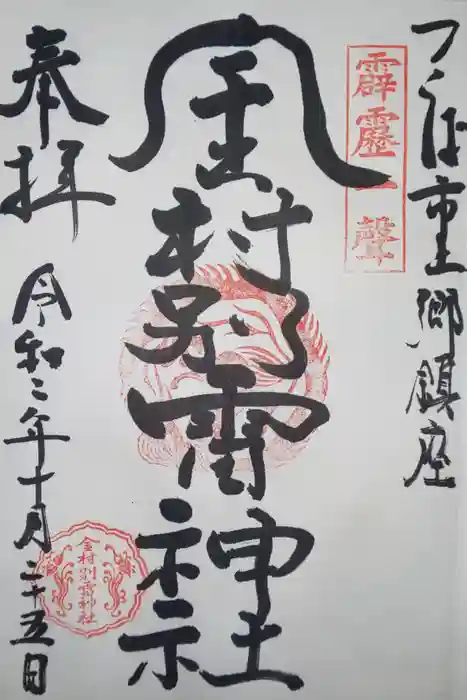 つくば市上郷鎮座
霹靂一聲
金村別雷神社
奉拝
令和二年十月二十五日
金村別雷神社